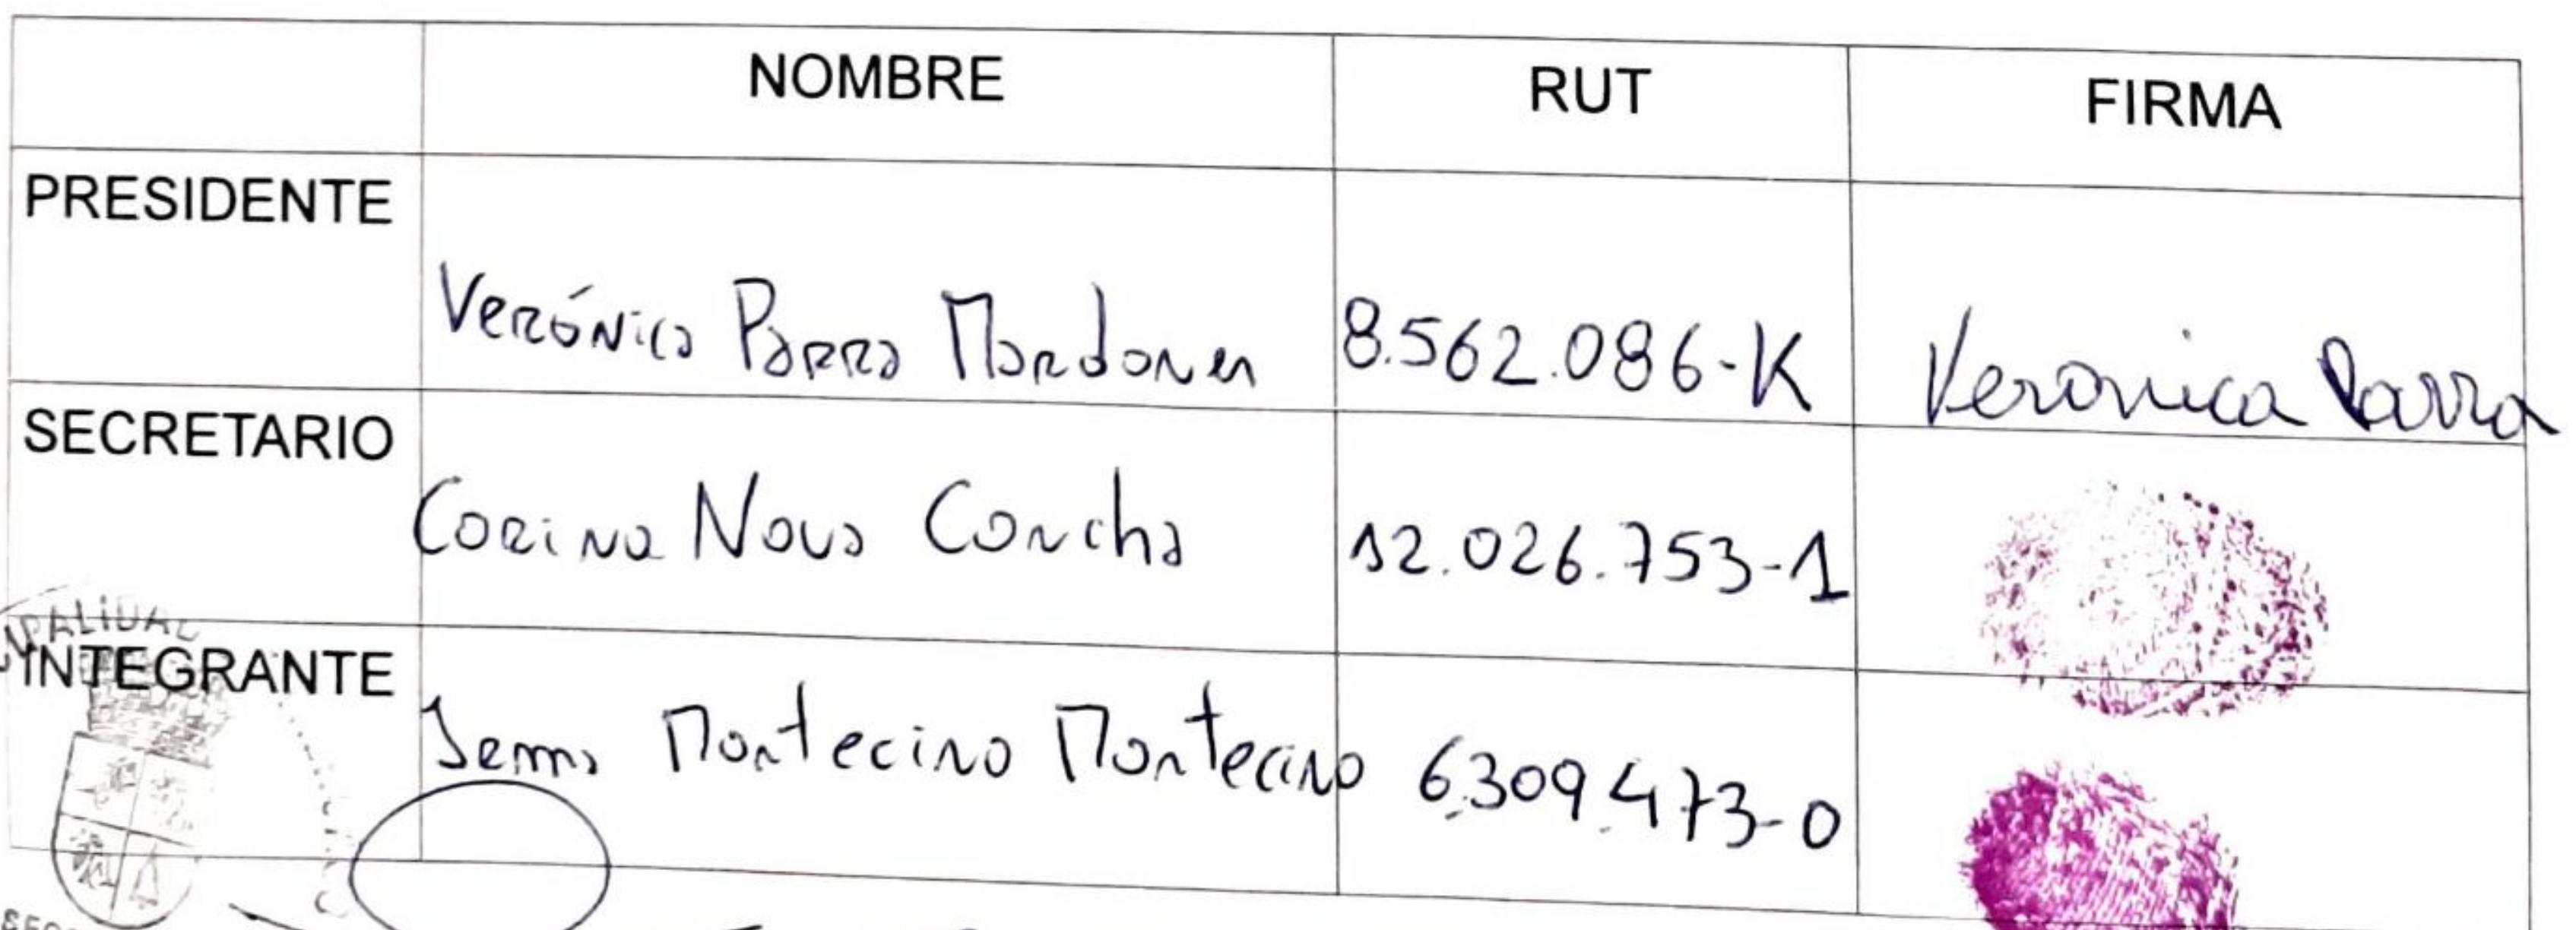 NOMBRE RUT FIRMA
PRESIDENTE
Verónica Parra Mardones 8.562.086-K Veronica Parra
SECRETARIO
Corina Nova Concha 12.026.753-1
INTEGRANTE
Montecino Montecino 6.309.473-0